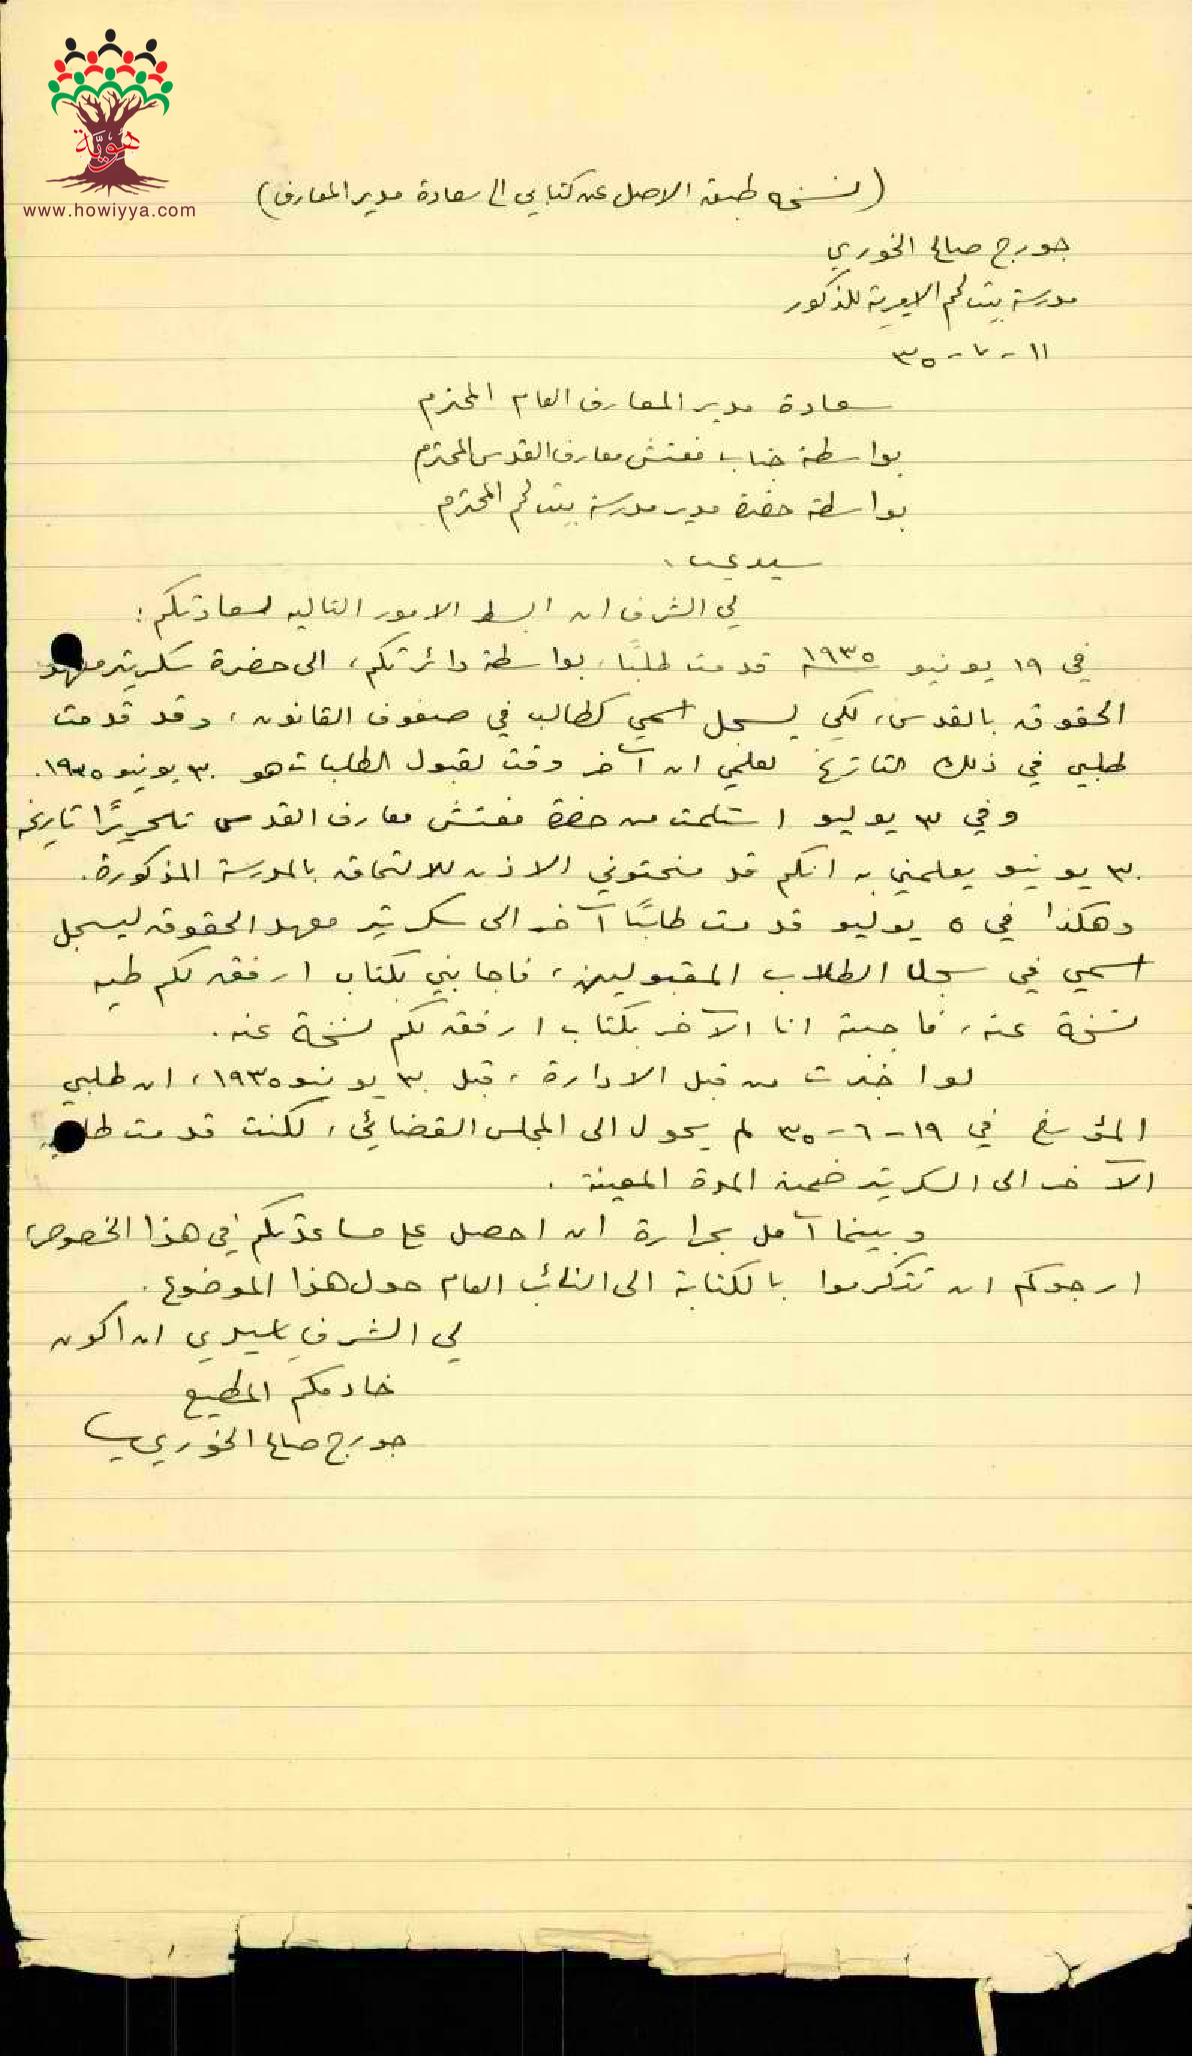 هويّة
www.howiyya.com
(نسخه طبق الاصل عن كتابي الى سعادة مدير المعارف)
جورج صالح الخوري
مدرسة بيت لحم الاميرية للذكور
١١ - ٧ - ٣٥
سعادة مدير المعارف العام المحترم
بواسطة جناب مفتش معارف القدس المحترم
بواسطة حضرة مدير مدرسة بيت لحم المحترم
سيدي،
لي الشرف ان ابسط الامور التاليه لسعادتكم:
في ١٩ يونيو ١٩٣٥ قدمت طلبًا، بواسطة دائرتكم، الى حضرة سكرتير معهد
الحقوق بالقدس، لكي يسجل اسمي كطالب في صفوف القانون، وقد قدمت
طلبي في ذلك التاريخ لعلمي ان آخر وقت لقبول الطلبات هو ٣٠ يونيو ١٩٣٥.
وفي ٣ يوليو استلمت من حضرة مفتش معارف القدس تحريرًا تاريخه
٣٠ يونيو يعلمني به انكم قد منحتوني الاذن للالتحاق بالمدرسة المذكورة.
وهكذا في ٥ يوليو قدمت طلبًا آخر الى سكرتير معهد الحقوق ليسجل
اسمي في سجل الطلاب المقبولين، فاجابني بكتاب ارفق لكم طيه
نسخة عنه، فاجبته انا الآخر بكتاب ارفق لكم نسخة عنه.
لو اخبرت من قبل الادارة، قبل ٣٠ يونيو ١٩٣٥، ان طلبي
المؤرخ في ١٩ - ٦ - ٣٥ لم يحول الى المجلس القضائي، لكنت قدمت طلبي
الآخر الى السكرتير ضمن المدة المعينة.
وبينما آمل بحرارة ان احصل على مساعدتكم في هذا الخصوص،
ارجوكم ان تتكرموا بالكتابة الى النائب العام حول هذا الموضوع.
لي الشرف ياسيدي ان اكون
خادمكم المطيع
جورج صالح الخوري